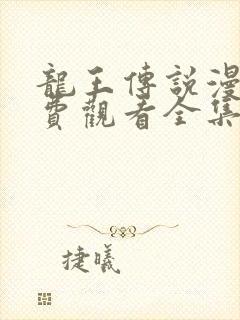 龍王傳說漫
費觀看全集
捷曦